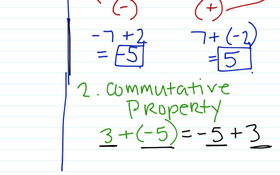 (-) (+)
-7+2 7+(-2)
= -5 = 5
2. Commutative
Property
3 + (-5) = -5 + 3